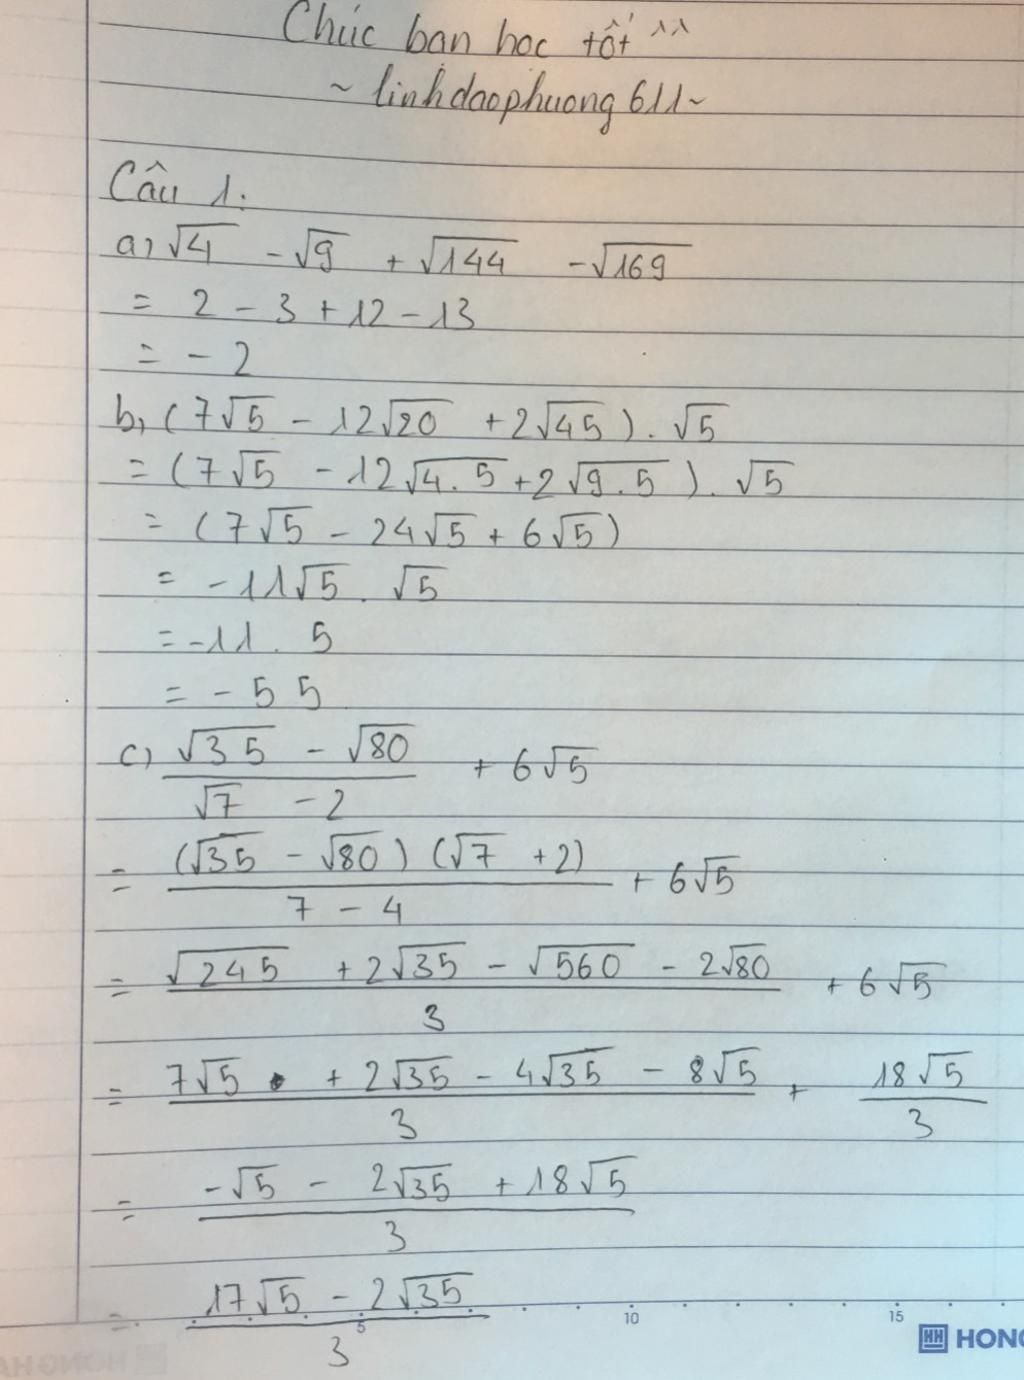 Chúc bạn học tốt ^^
~ linhdaophuong611~
Câu 1:
a, √4 - √9 + √144 - √169
= 2 - 3 + 12 - 13
= - 2
b, (7√5 - 12√20 + 2√45) . √5
= (7√5 - 12√4.5 + 2√9.5) . √5
= (7√5 - 24√5 + 6√5)
= -11√5 . √5
= -11 . 5
= - 55
c, (√35 - √80)/(√7 - 2) + 6√5
= (√35 - √80)(√7 + 2)/(7 - 4) + 6√5
= (√245 + 2√35 - √560 - 2√80)/3 + 6√5
= (7√5 + 2√35 - 4√35 - 8√5)/3 + 18√5/3
= (-√5 - 2√35 + 18√5)/3
= (17√5 - 2√35)/3
5 10 15
HH HONG